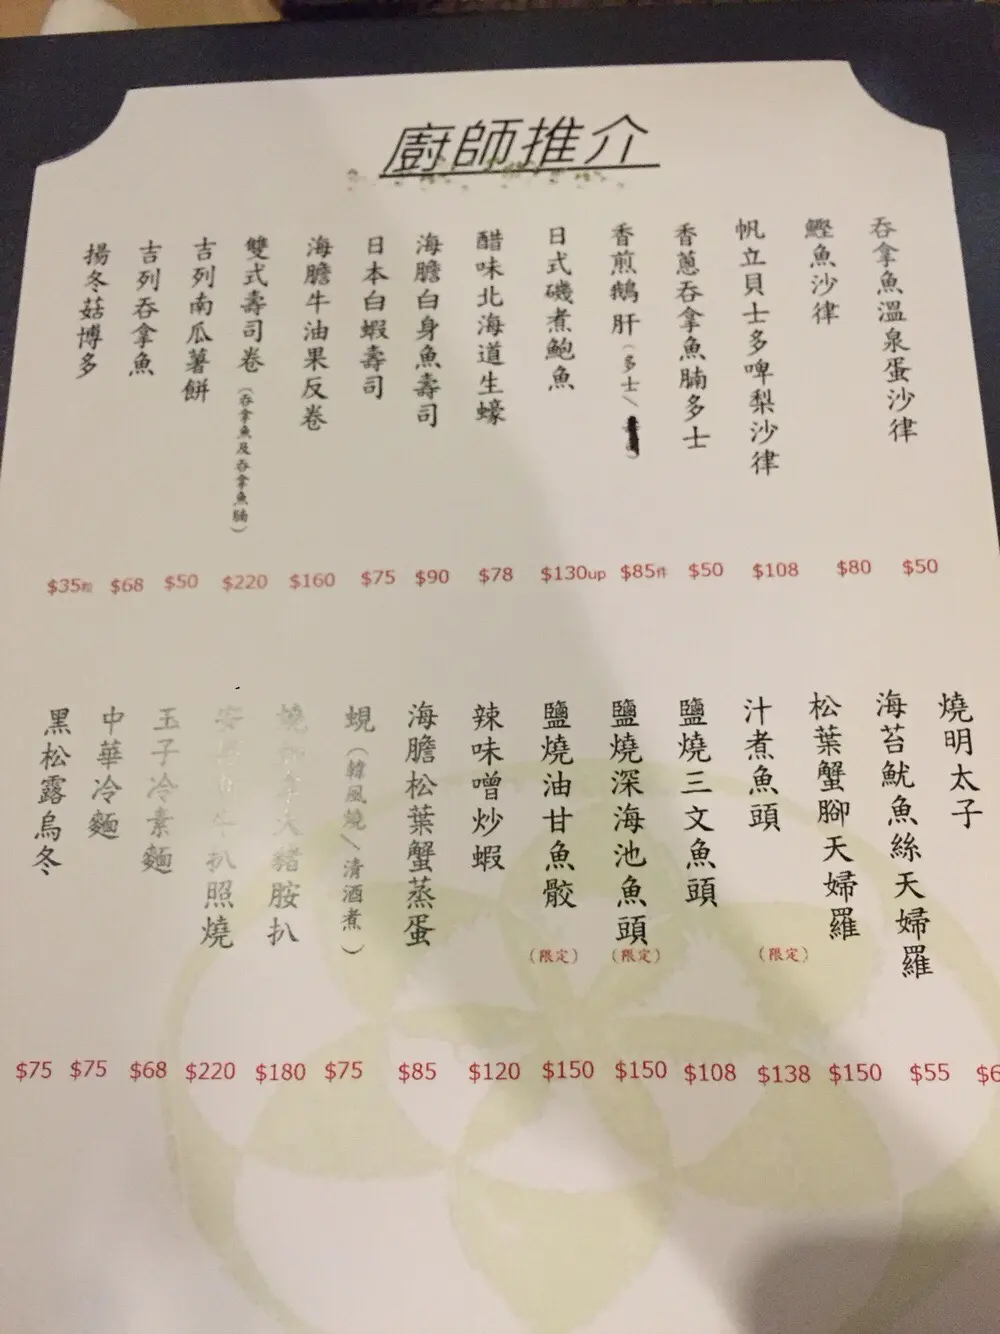 廚師推介
吞拿魚溫泉蛋沙律
$50
鰹魚沙律
$80
帆立貝士多啤梨沙律
$108
香蔥吞拿魚腩多士
$50
香煎鵝肝(多士/
$85件
日式磯煮鮑魚
$130up
醋味北海道生蠔
$78
海膽白身魚壽司
$90
日本白蝦壽司
$75
海膽牛油果反卷
$160
雙式壽司卷(吞拿魚及吞拿魚腩)
$220
吉列南瓜薯餅
$50
吉列吞拿魚
$68
揚冬菇博多
$35粒
燒明太子
$6
海苔魷魚絲天婦羅
$55
松葉蟹腳天婦羅
$150
汁煮魚頭(限定)
$138
鹽燒三文魚頭
$108
鹽燒深海池魚頭(限定)
$150
鹽燒油甘魚骹(限定)
$150
辣味噌炒蝦
$120
海膽松葉蟹蒸蛋
$85
蜆(韓風燒/清酒煮)
$75
燒加拿大豬胺扒
$180
牛扒照燒
$220
玉子冷素麵
$68
中華冷麵
$75
黑松露烏冬
$75